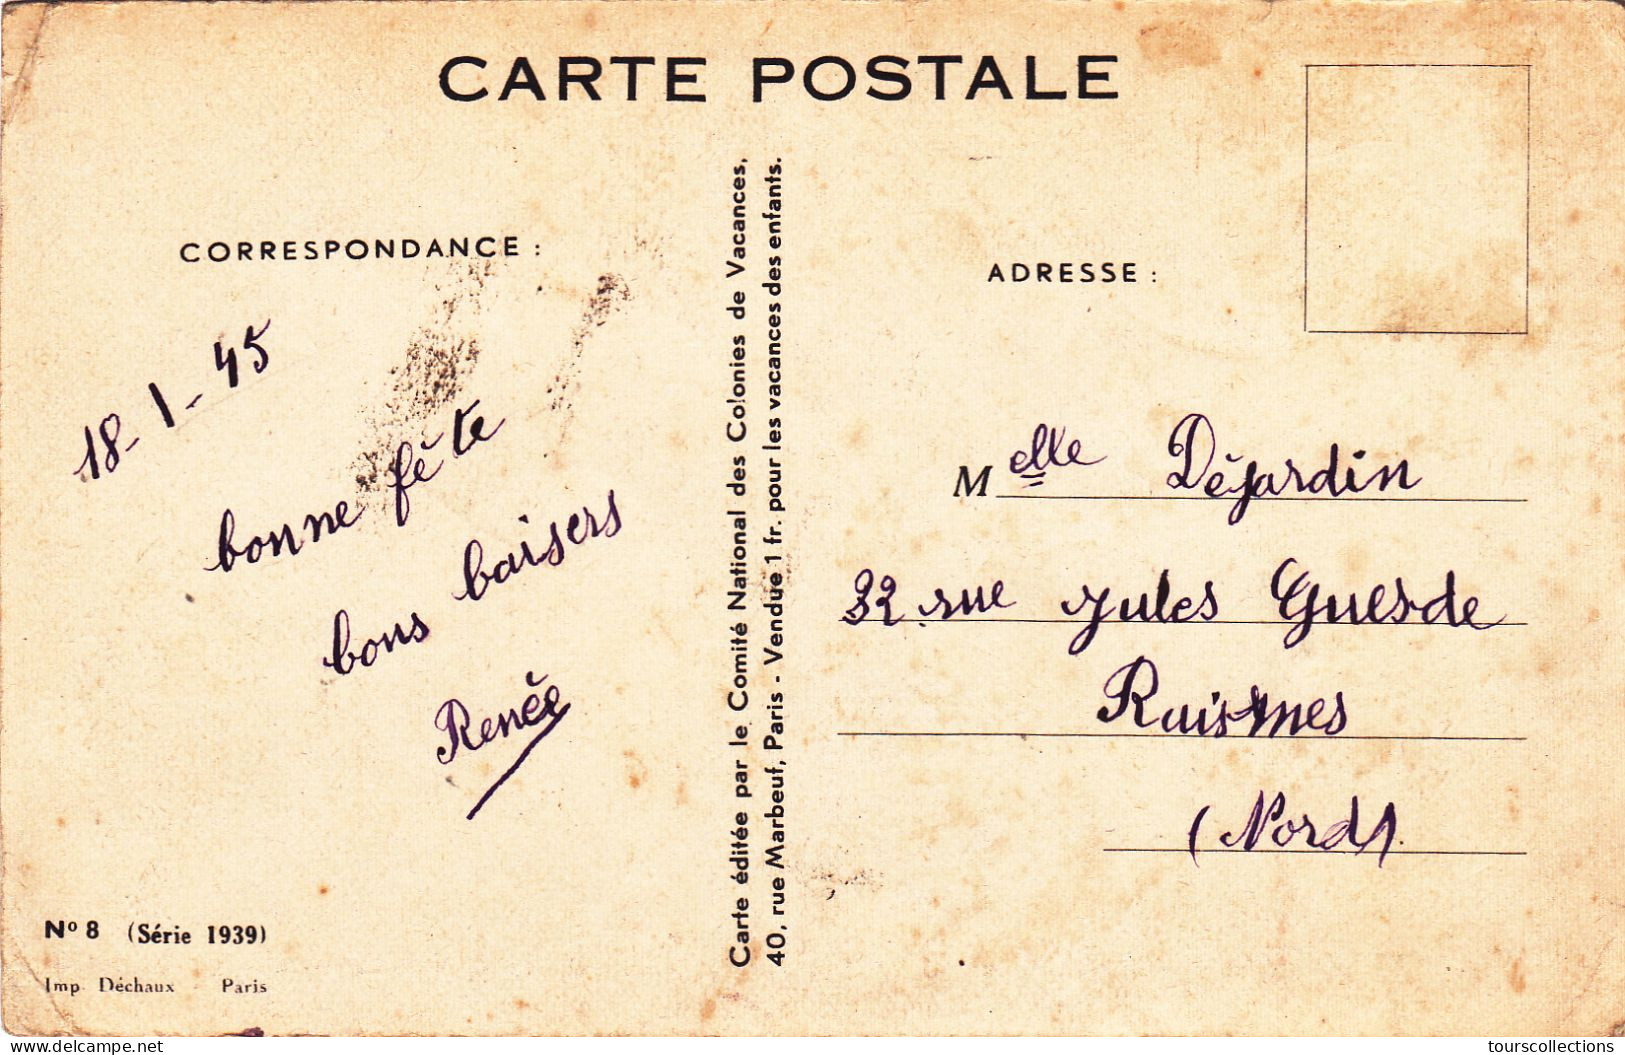 CARTE POSTALE
CORRESPONDANCE :
18-1-45
bonne fête
bons baisers
Renée
Nº 8 (Série 1939)
Imp Déchaux Paris
Carte éditée par le Comité National des Colonies de Vacances,
40, rue Marbeuf, Paris - Vendue 1 fr. pour les vacances des enfants.
ADRESSE :
Melle Déjardin
32 rue Jules Guesde
Raismes
(Nord).
delcampe.net
tourscollections